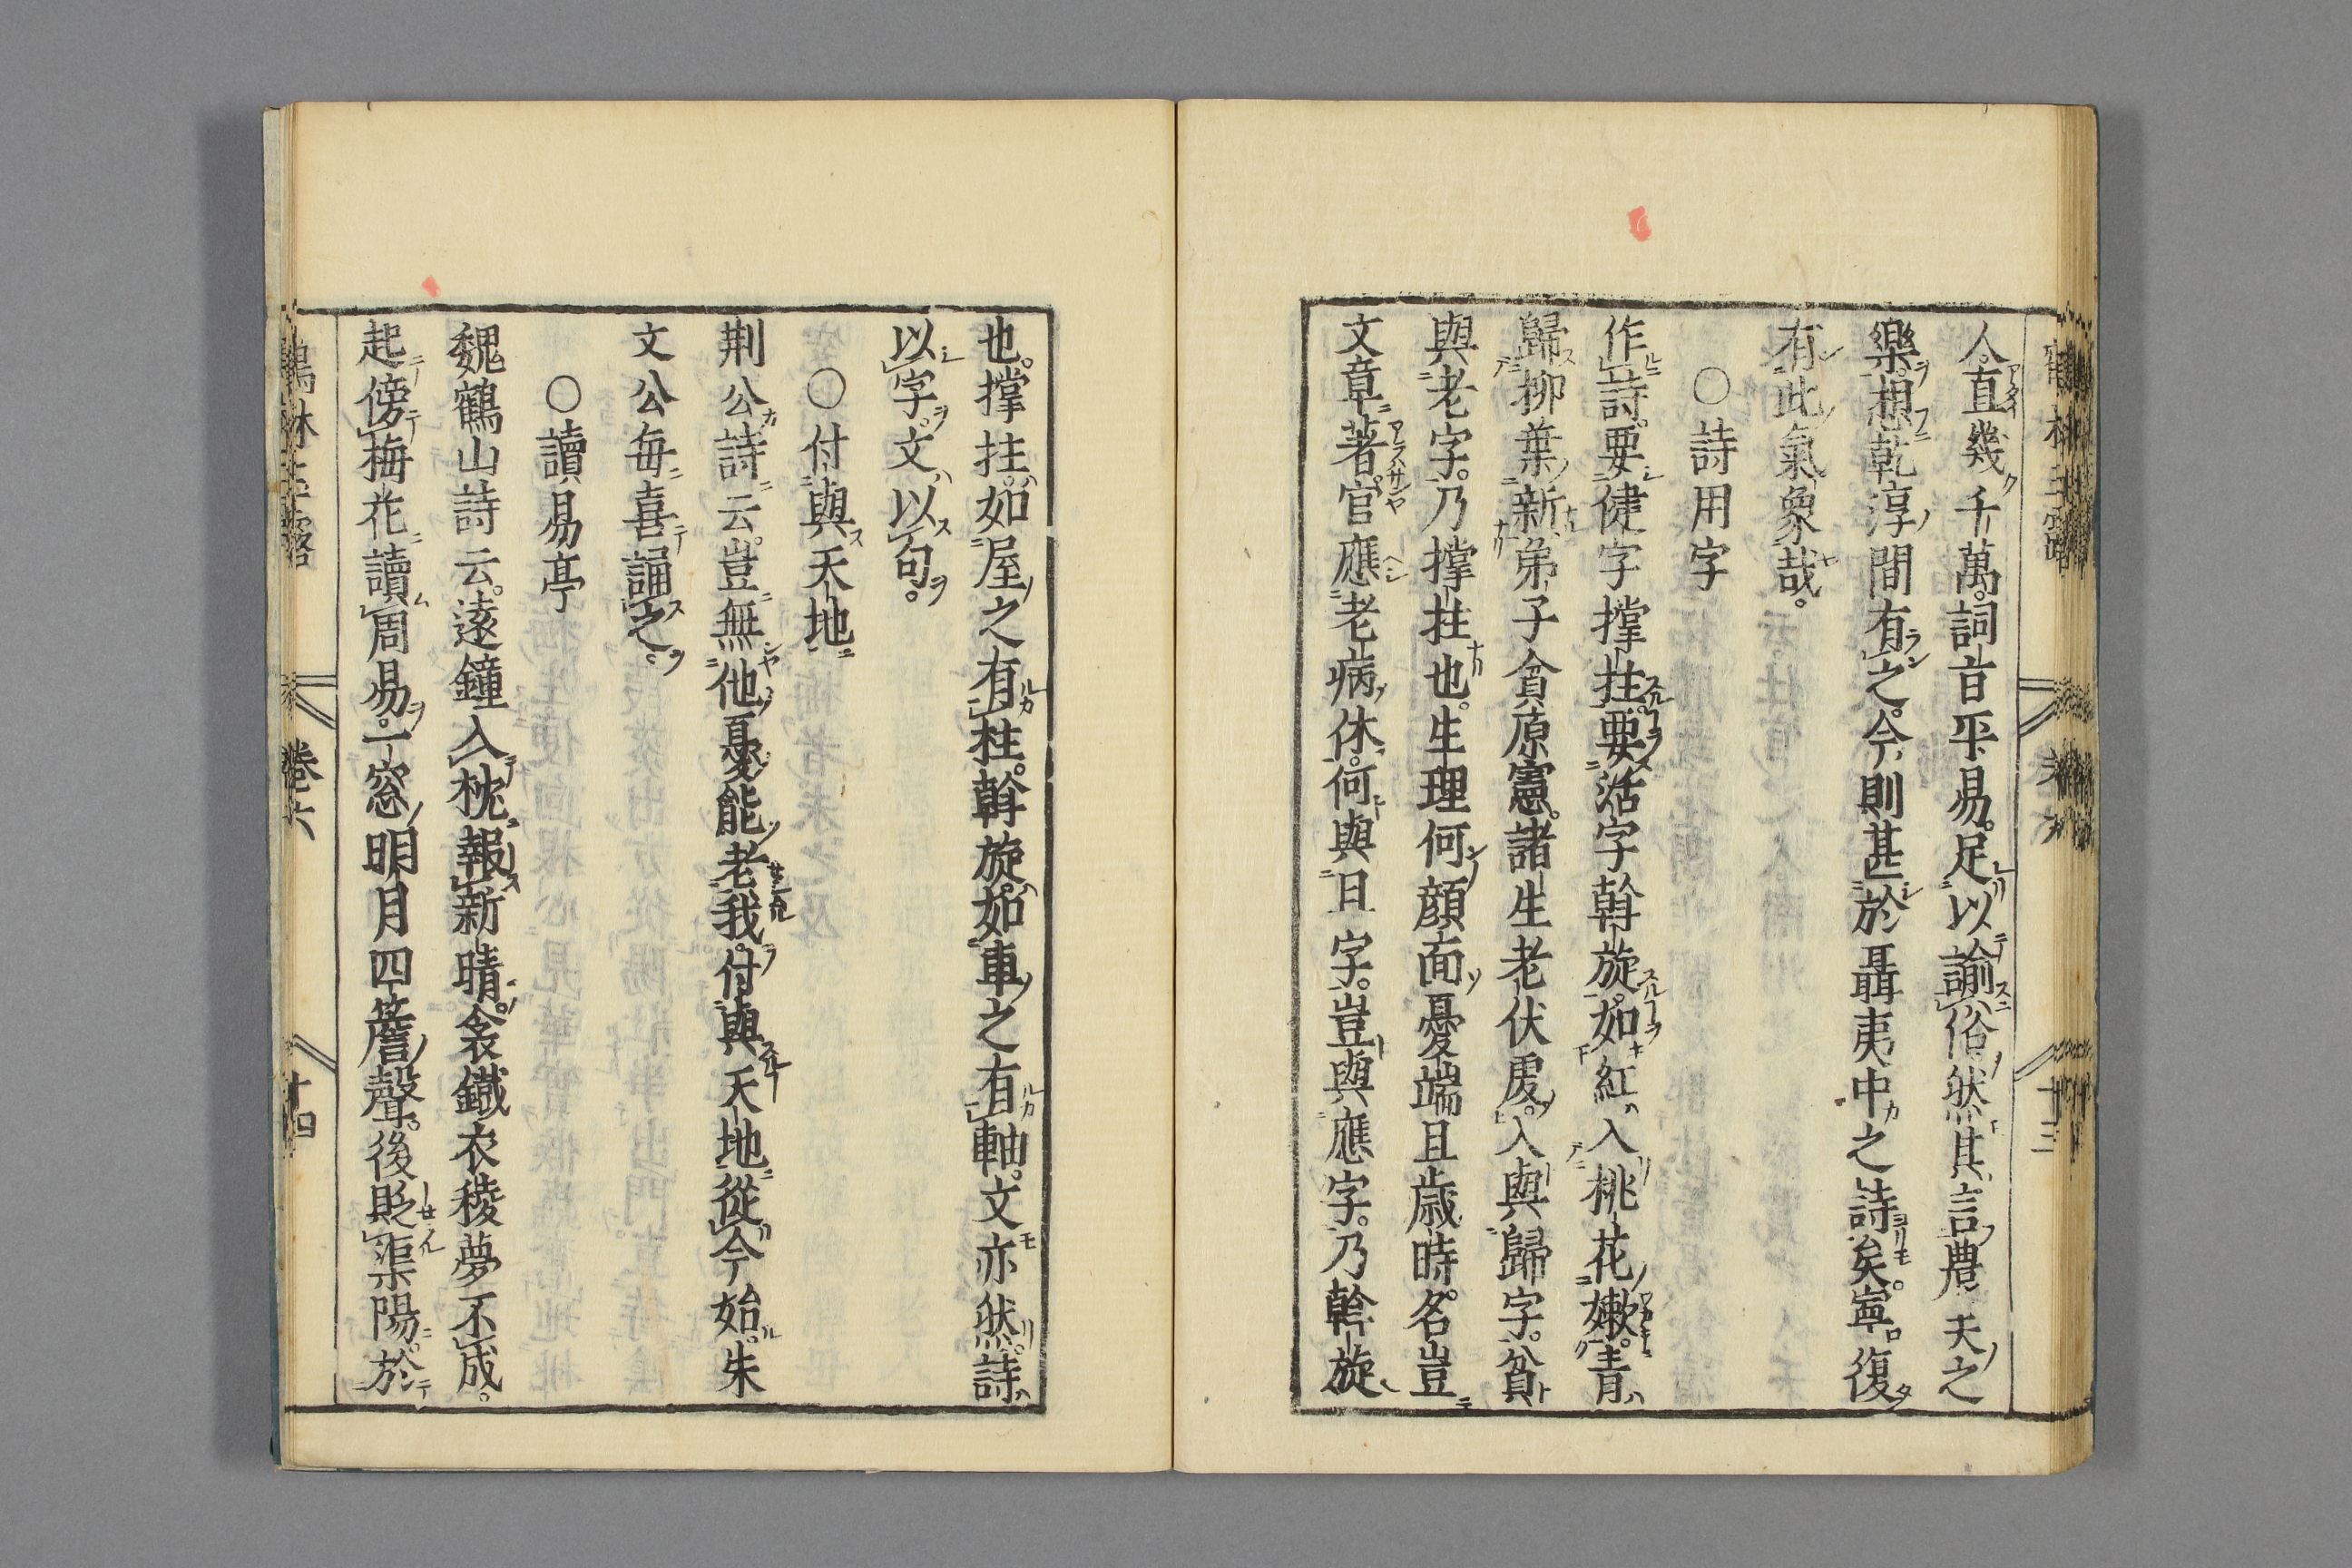 人。直幾千萬。詞旨平易。足以諭俗。然其言農夫之
樂。想乾淳間有之。今則甚於聶夷中之詩矣。寧復
有此氣象哉。
○詩用字
作詩。要健字撐拄。要活字斡旋。如紅入桃花嫩。青
歸柳葉新。弟子貧原憲。諸生老伏虔。入與歸字。貧
與老字。乃撐拄也。生理何顏面。憂端且歲時。名豈
文章著。官應老病休。何與且字。豈與應字。乃斡旋
也。撐拄。如屋之有柱。斡旋。如車之有軸。文亦然。詩
以字。文以句。
○付與天地
荆公詩云。豈無他憂能老我。付與天地從今始。朱
文公每喜誦之。
○讀易亭
魏鶴山詩云。遠鐘入枕報新晴。衾鐵衣稜夢不成。
起傍梅花讀周易。一窓明月四簷聲。後貶渠陽。於
卷六
十四